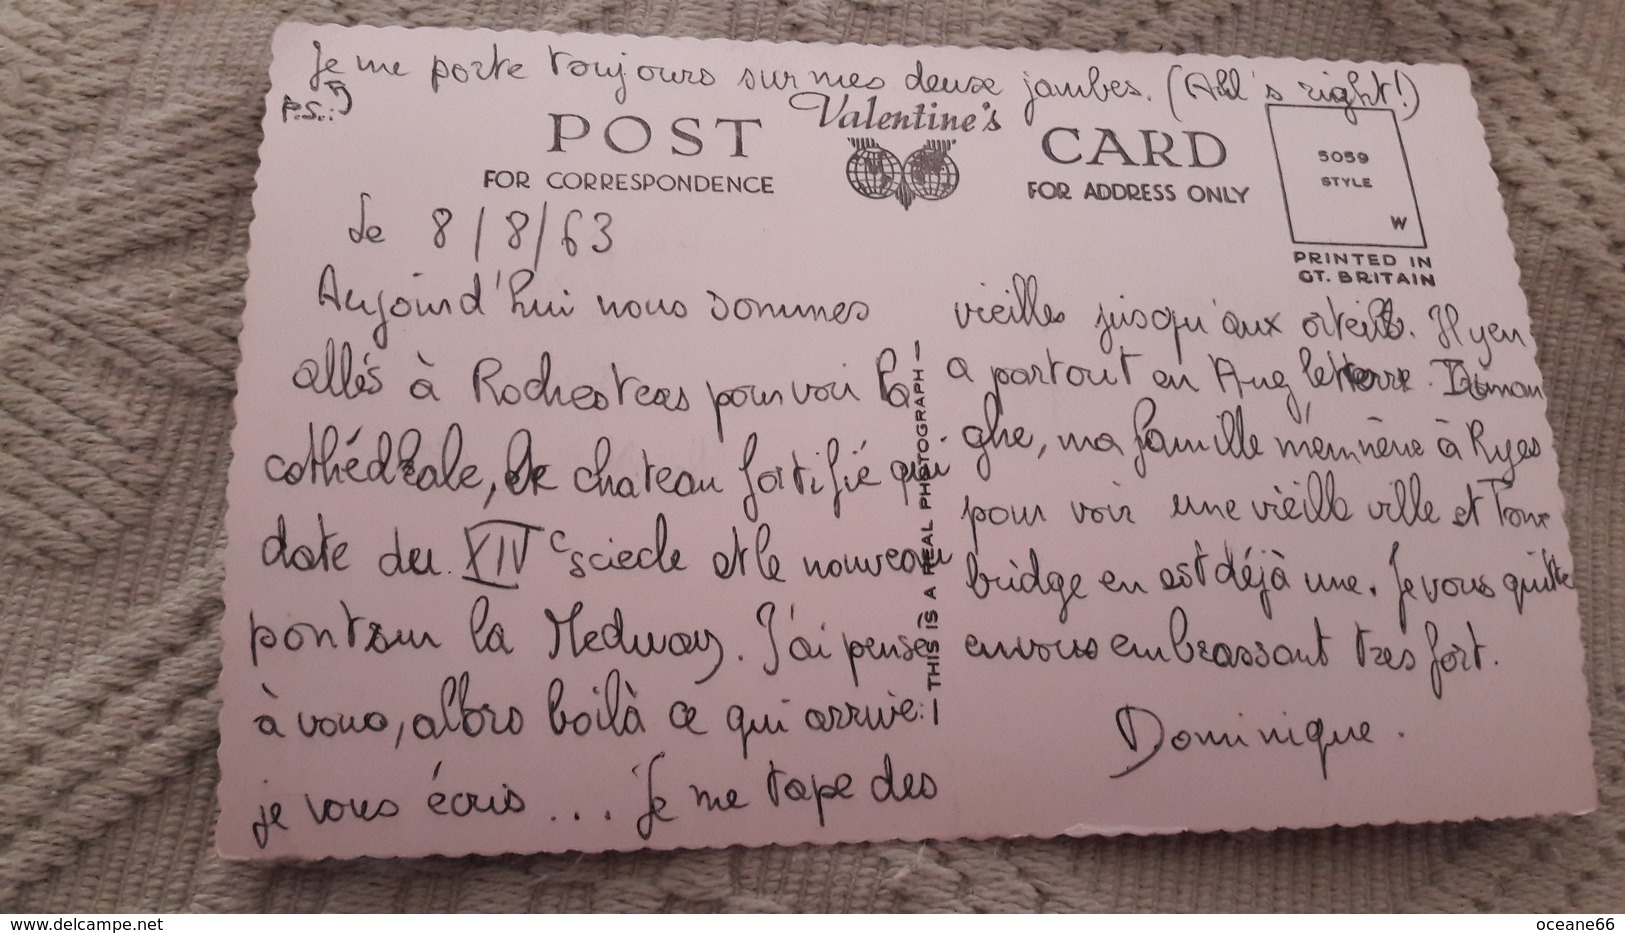 Je me porte toujours sur mes deux jambes. (All's right!)
P.S.:
Valentine's
POST CARD
FOR CORRESPONDENCE
FOR ADDRESS ONLY
5059
STYLE
W
PRINTED IN
GT. BRITAIN
le 8/8/63
Aujourd'hui nous sommes
allés à Rochesters pour voir la
cathédrale, le chateau fortifié qui
date du XIVe sciecle et le nouveau
pont sur la Medway. J'ai pensé
à vous, allors boilà ce qui arrive:
je vous écris... Je me tape des
THIS IS A REAL PHOTOGRAPH
vieilles jusqu'aux orteils. Il y en
a partout en Angleterre. Diman
ghe, ma famille m'emmène à Ryes
pour voir une vieille ville et Ton
bridge en est déjà une. Je vous quitte
en vous embrassant tres fort.
Dominique.
delcampe.net
oceane66